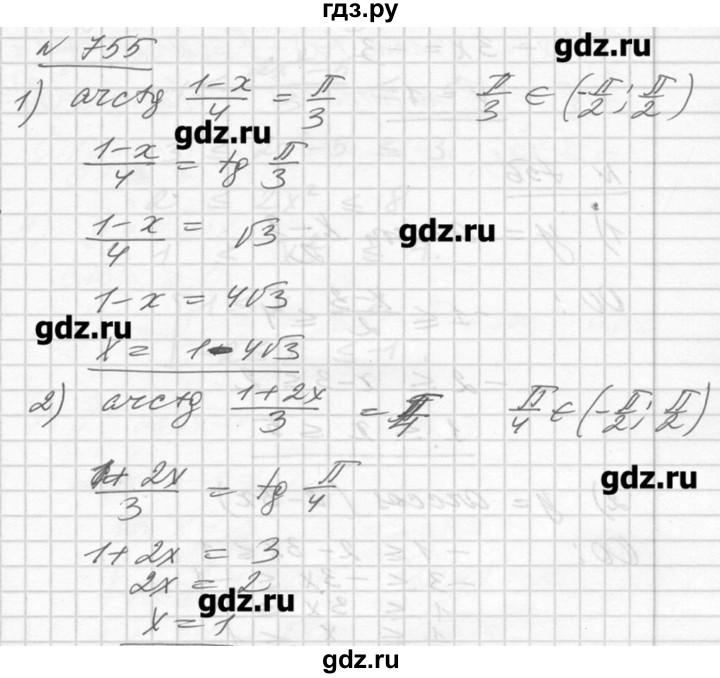 гдз.ру
№ 755
gdz.ru
1) arctg (1-x)/4 = π/3    π/3 ∈ (-π/2; π/2)
gdz.ru
(1-x)/4 = tg π/3
(1-x)/4 = √3
gdz.ru
1-x = 4√3
gdz.ru
x = 1-4√3
2) arctg (1+2x)/3 = π/4    π/4 ∈ (-π/2; π/2)
(1+2x)/3 = tg π/4
gdz.ru
1+2x = 3
2x = 2
gdz.ru
x = 1
gdz.ru